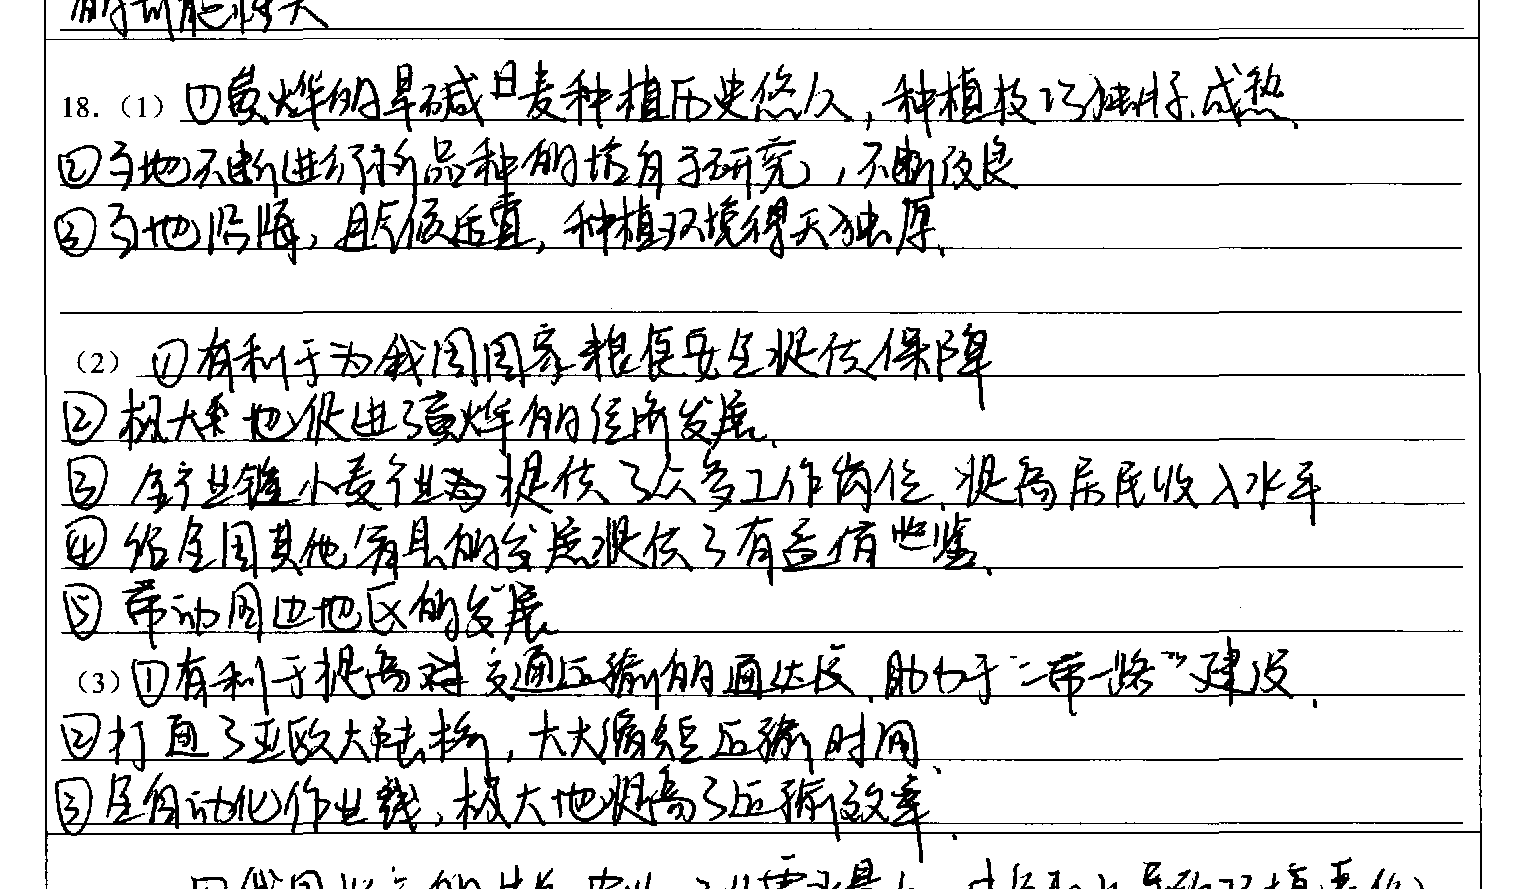 的可能性大
18.（1）①黄烨的旱碱麦种植历史悠久，种植技巧独特、成熟.
②当地不断进行新品种的培育于研究，不断改良
③当地沿海，且气候适宜，种植环境得天独厚.
（2）①有利于为我国国家粮食安全提供保障
②极大地促进了黄烨的经济发展.
③全产业链小麦行业为提供了众多工作岗位.提高居民收入水平
④给全国其他省县的发展提供了有益借鉴.
⑤带动周边地区的发展
（3）①有利于提高交通运输的通达度.助力于“一带一路”建设.
②打通了亚欧大陆桥，大大缩短运输时间.
③全自动化作业线，极大地提高了运输效率.